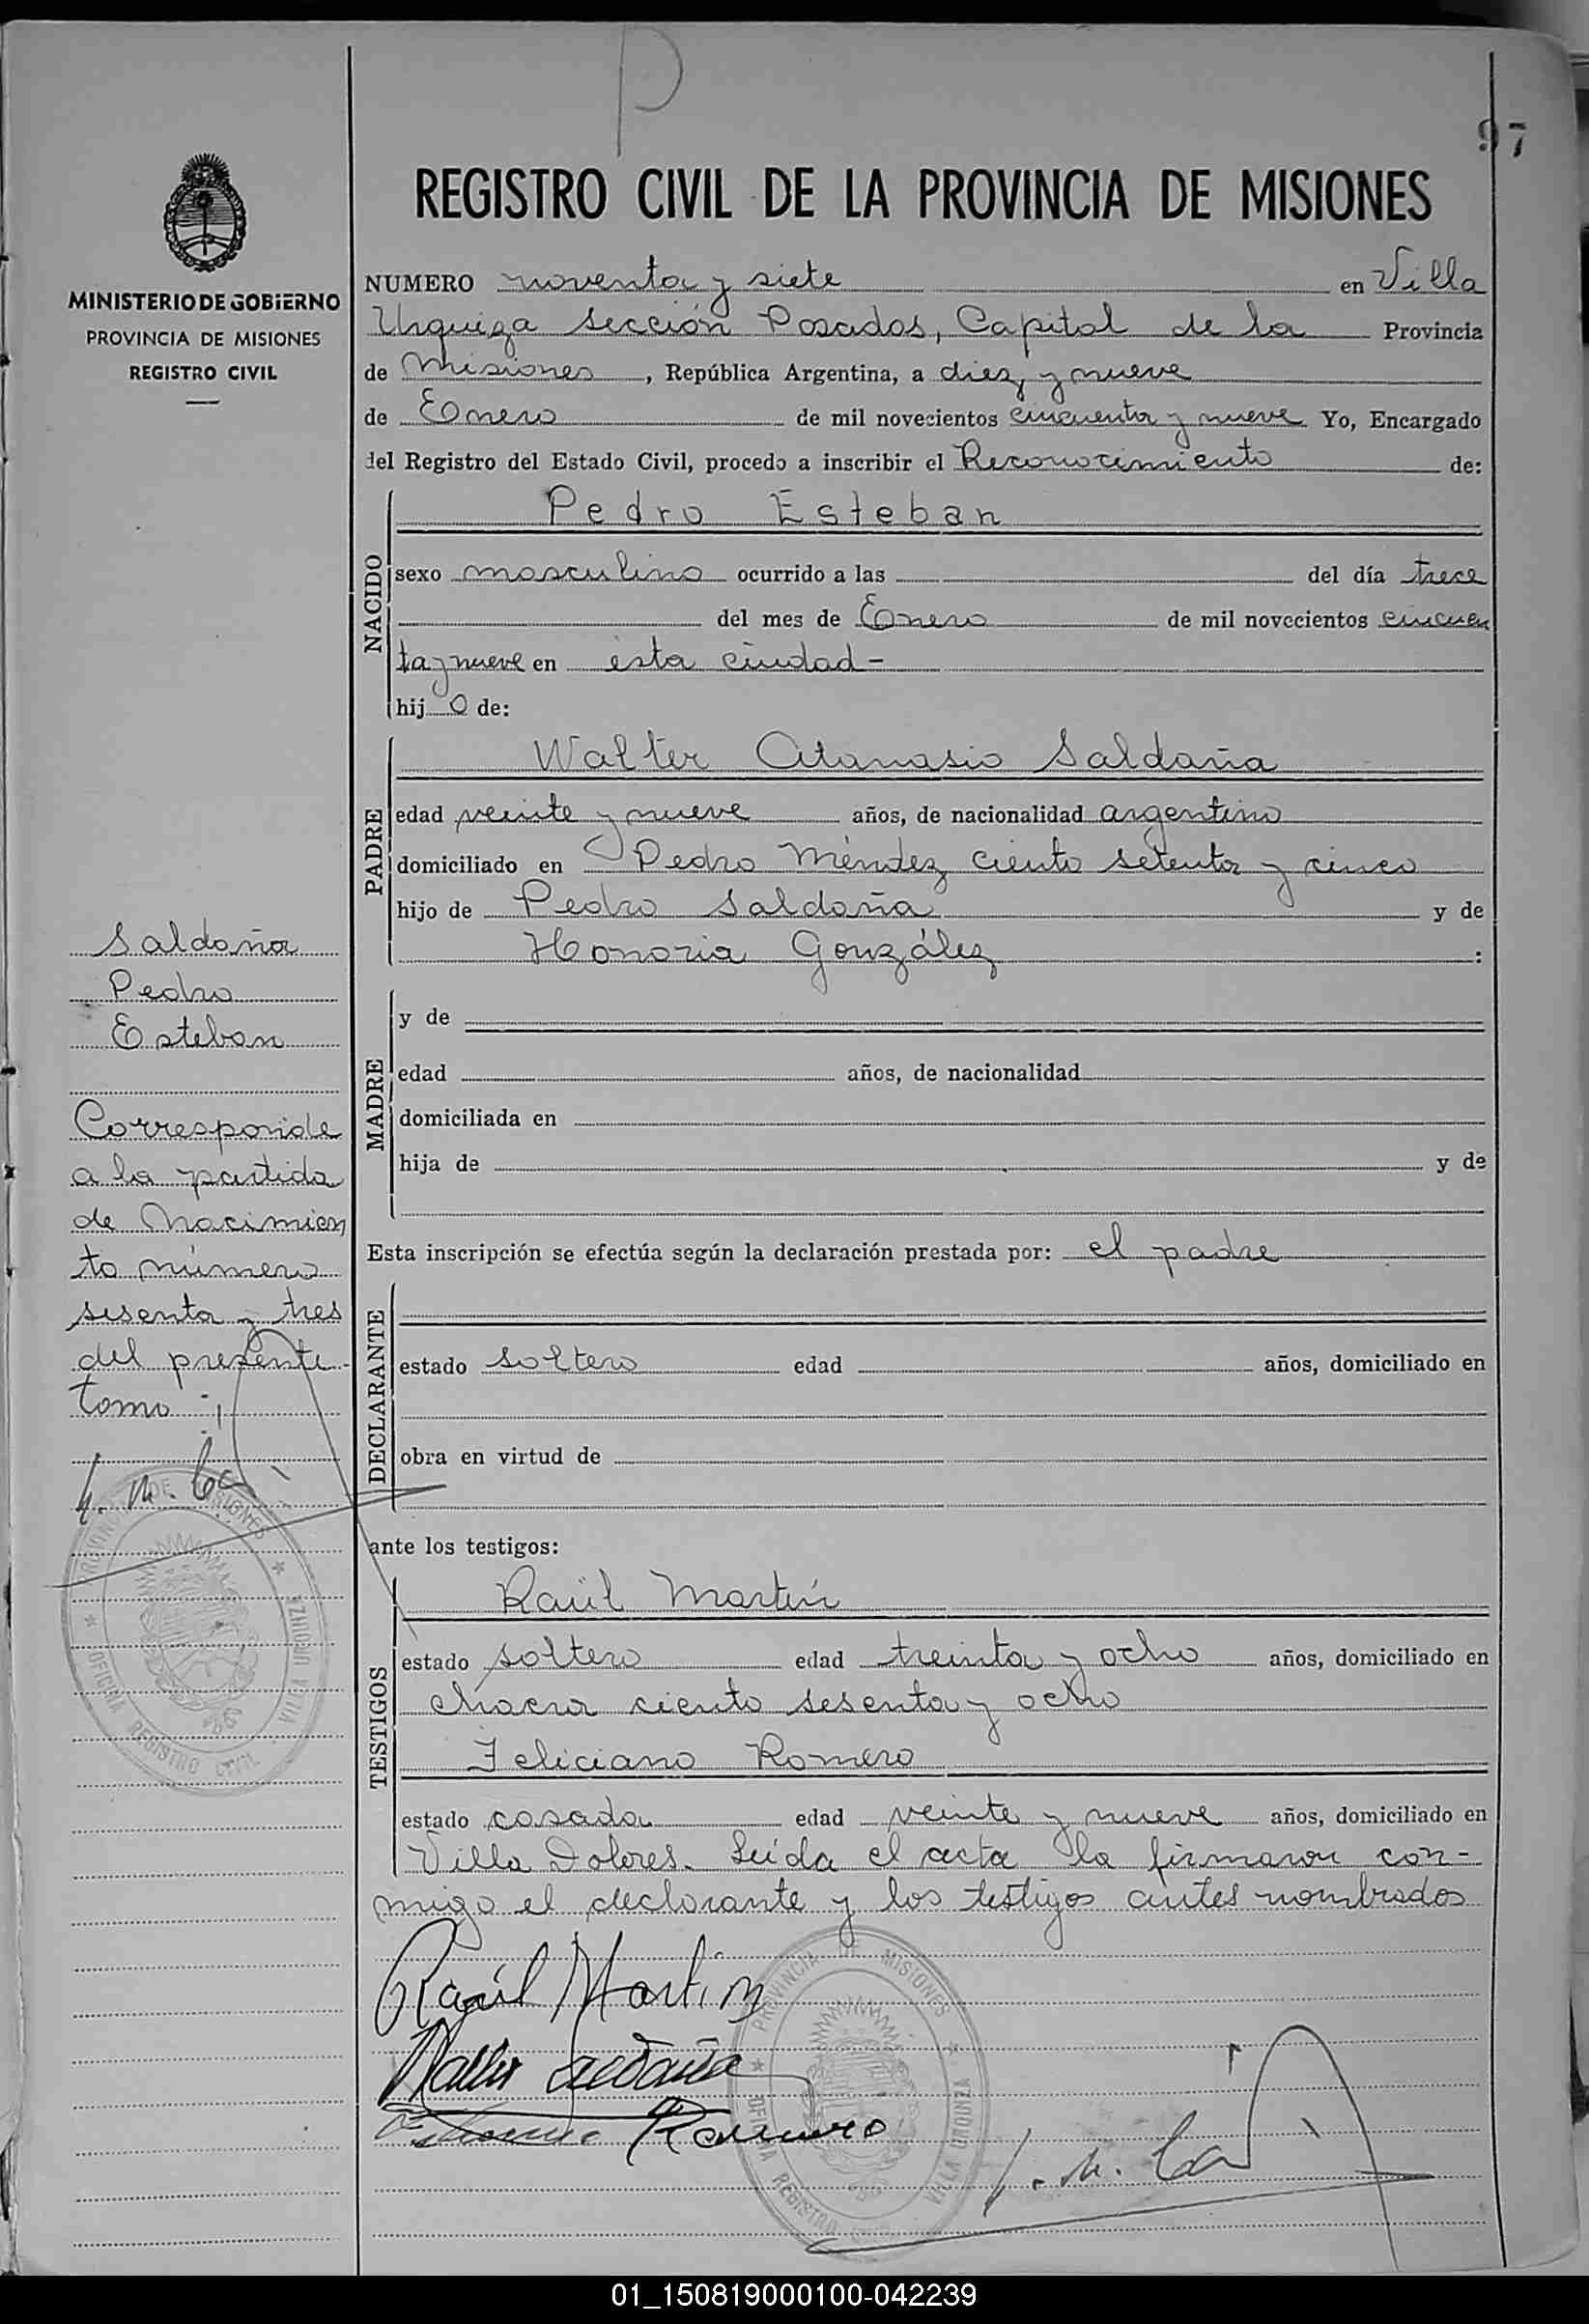 P
97
REGISTRO CIVIL DE LA PROVINCIA DE MISIONES
MINISTERIO DE GOBIERNO
PROVINCIA DE MISIONES
REGISTRO CIVIL
NUMERO noventa y siete en Villa
Urquiza sección Posadas, Capital de la Provincia
de Misiones, República Argentina, a diez y nueve
de Enero de mil novecientos cincuenta y nueve Yo, Encargado
del Registro del Estado Civil, procedo a inscribir el Reconocimiento de:
NACIDO
Pedro Esteban
sexo masculino ocurrido a las del día trece
del mes de Enero de mil novecientos cincuen
ta y nueve en esta ciudad -
hijo de:
PADRE
Walter Atanasio Saldaña
edad veinte y nueve años, de nacionalidad argentino
domiciliado en Pedro Méndez ciento setenta y cinco
hijo de Pedro Saldaña y de
Honoria González :
MADRE
y de
edad años, de nacionalidad
domiciliada en
hija de y de
Esta inscripción se efectúa según la declaración prestada por: el padre
DECLARANTE
estado soltero edad años, domiciliado en
obra en virtud de
ante los testigos:
TESTIGOS
Raúl Martín
estado soltero edad treinta y ocho años, domiciliado en
chacra ciento sesenta y ocho
Feliciano Romero
estado casado edad veinte y nueve años, domiciliado en
Villa Dolores. Leída el acta la firmaron con-
migo el declarante y los testigos antes nombrados
Raúl Martin
Walter Saldaña
Romero
PROVINCIA DE MISIONES
OFICINA REGISTRO CIVIL
VILLA URQUIZA
Saldaña
Pedro
Esteban
Corresponde
a la partida
de Nacimien
to número
sesenta y tres
del presente
tomo -
PROVINCIA DE MISIONES
OFICINA REGISTRO CIVIL
VILLA URQUIZA
01_150819000100-042239